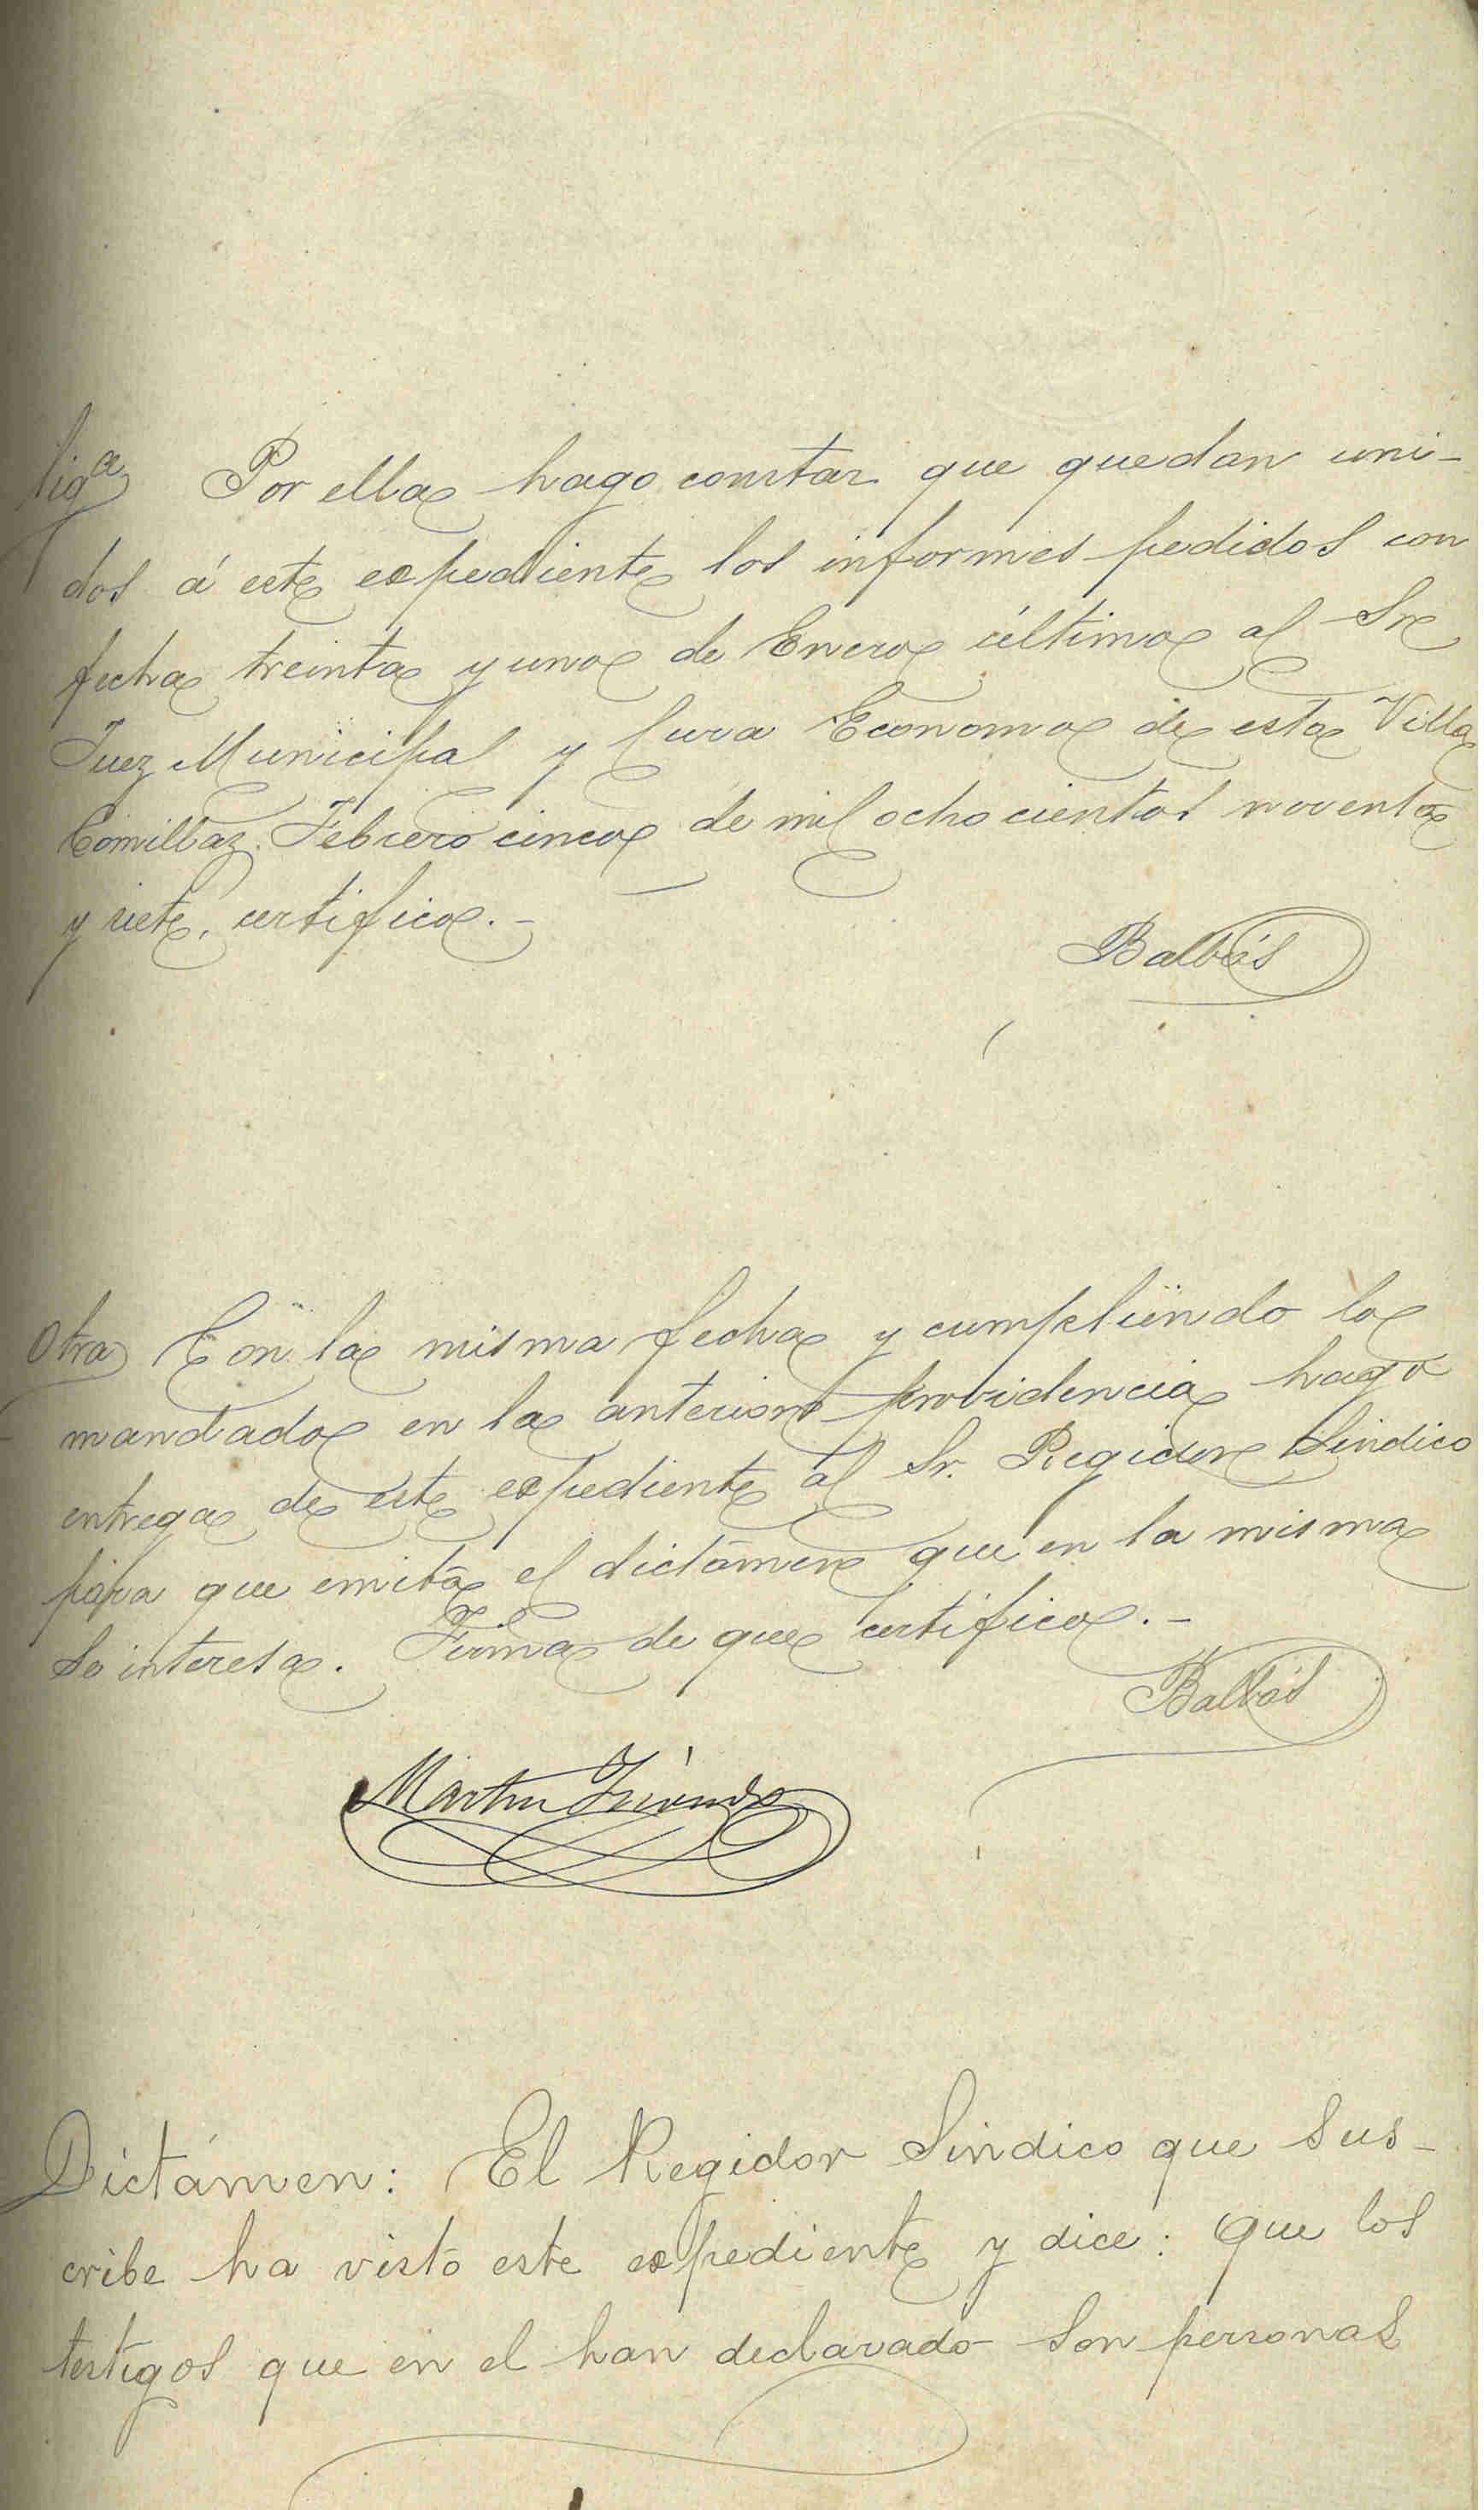 Por ella hago constar que quedan uni-
dos á este expediente los informes pedidos con
fecha treinta y uno de Enero último al Sr
Juez Municipal y Cura Economo de esta Villa
Comillaz. Febrero cinco de mil ochocientos noventa
y siete, certifico.-
Balbás
Otra Con la misma fecha y cumpliendo lo
mandado en la anterior providencia hago
entrega de este expediente al Sr. Regidor Sindico
para que emita el dictámen que en la misma
se interesa. Firma de que certifico.-
Balbás
Martin
Dictámen: El Regidor Sindico que sus-
cribe ha visto este expediente y dice: Que los
testigos que en el han declarado son personas